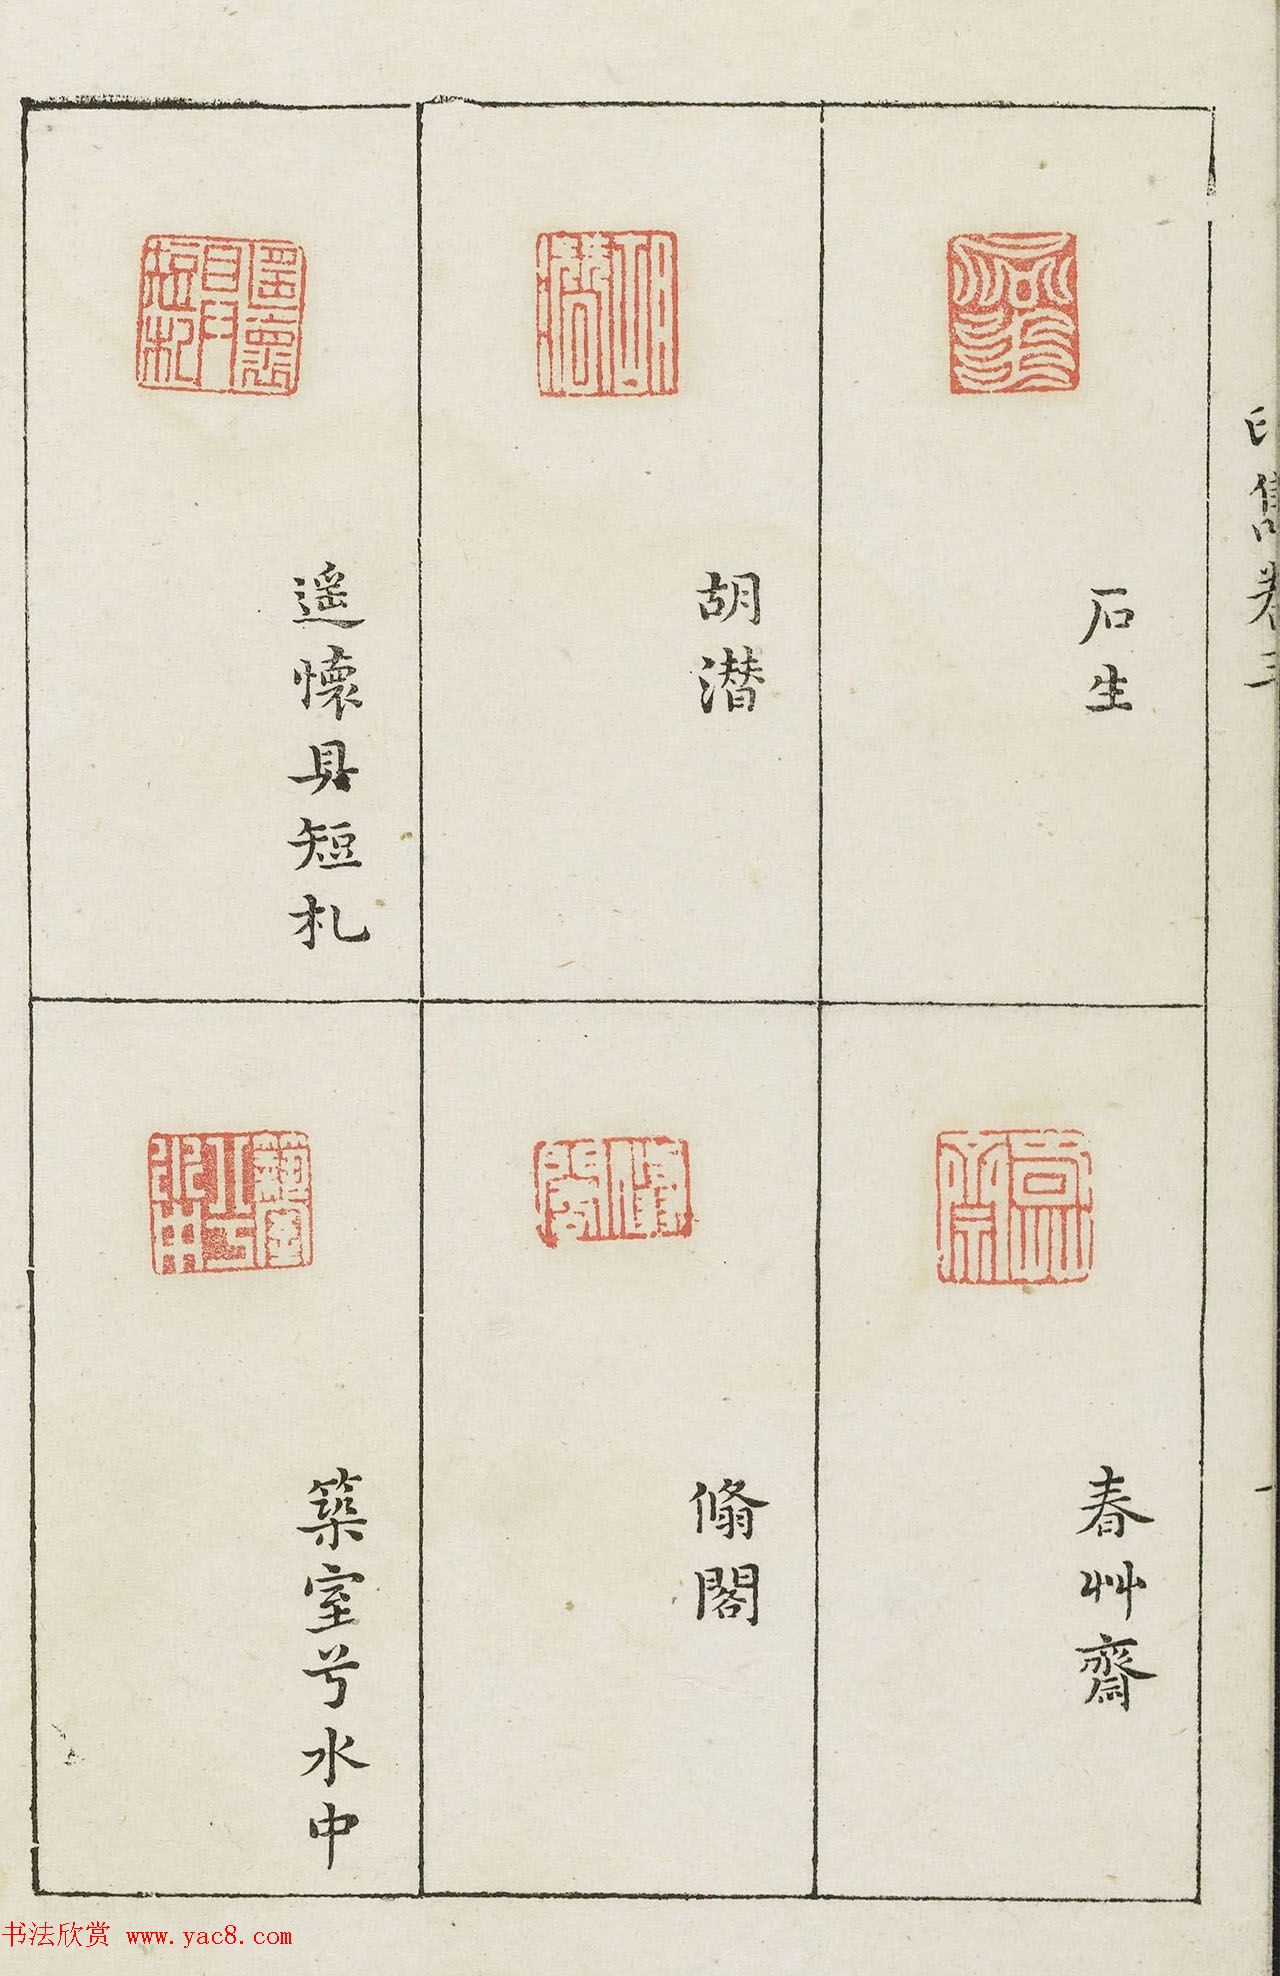 印雋卷三
石生
春艸齋
胡潜
翛閣
遥懷具短札
築室兮水中
一
书法欣赏 www.yac8.com